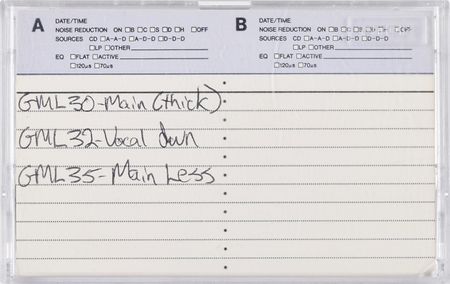 A DATE/TIME
NOISE REDUCTION ON □B □C □S □D □H □OFF
SOURCES CD □A-A-D □A-D-D □D-D-D
□LP □OTHER
EQ □FLAT □ACTIVE
□120μs □70μs
B DATE/TIME
NOISE REDUCTION ON □B □C □S □D □H □OFF
SOURCES CD □A-A-D □A-D-D □D-D-D
□LP □OTHER
EQ □FLAT □ACTIVE
□120μs □70μs
GML30-Main (thick)
GML32-Vocal down
GML35-Main Less